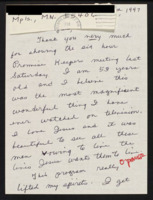 Mpls, MN. 554
1997
Thank you very much
for showing the six hour
Promise Keeper meeting last
Saturday. I am 59 years
old and I believe this
was the most magnificent
wonderful thing I have
ever watched on television.
I love Jesus and it was
beautiful to see all these
men to live the
lives Jesus wants them to live.
This program really
lifted my spirits. I get